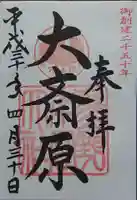 御創建二千五十年
奉拝
大斎原
平成三十年四月三十日